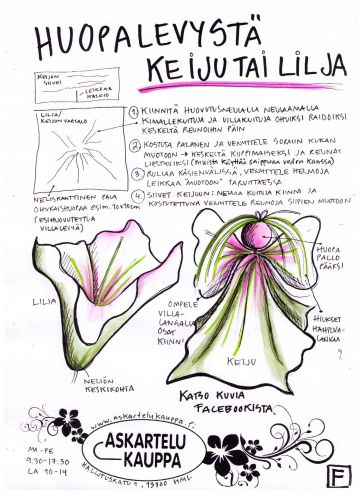 HUOPALEVYSTÄ
KEIJU TAI LILJA
KEIJUN
SIIVET
LEIKKAA
HALKIO
LILJA/
KEIJUN VARTALO
NELISKANTTINEN PALA
OHUKAISHUOPAA ESIM. 10x10cm
(ESIHUOVUTETTUA
VILLALEVYÄ)
1) KIINNITÄ HUOVUTUSNEULALLA NEULAAMALLA
KIMALLEKUITUJA JA VILLAKUITUJA OHUIKSI RAIDOIKSI
KESKELTÄ REUNOIHIN PÄIN
2) KOSTUTA PALANEN JA VENYTTELE SORMIN KUKAN
MUOTOON → KESKELTÄ KUPPIMAISEKSI JA REUNAT
LIEHUVIKSI (MUISTA KÄYTTÄÄ SAIPPUAA VEDEN KANSSA)
3) RULLAA KÄSIENVÄLISSÄ, VENYTTELE HELMOJA
LEIKKAA "MUOTOON" TARVITTAESSA
4) SIIVET KEIJUUN: NEULAA KUITUJA KIINNI JA
KOSTUTETTUNA VENYTTELE REUNOJA SIIPIEN MUOTOON
LILJA
NELIÖN
KESKIKOHTA
OMPELE
VILLA-
LANGALLA
OSAT
KIINNI
HUOPA
PALLO
PÄÄKSI
HIUKSET
HAHTUVA-
LANKAA
KEIJU
KATSO KUVIA
FACEBOOKISTA
www.askartelukauppa.fi
ASKARTELU
KAUPPA
HALLITUSKATU 1, 13100 HML
MA-PE
9.30-17.30
LA 10-14
F